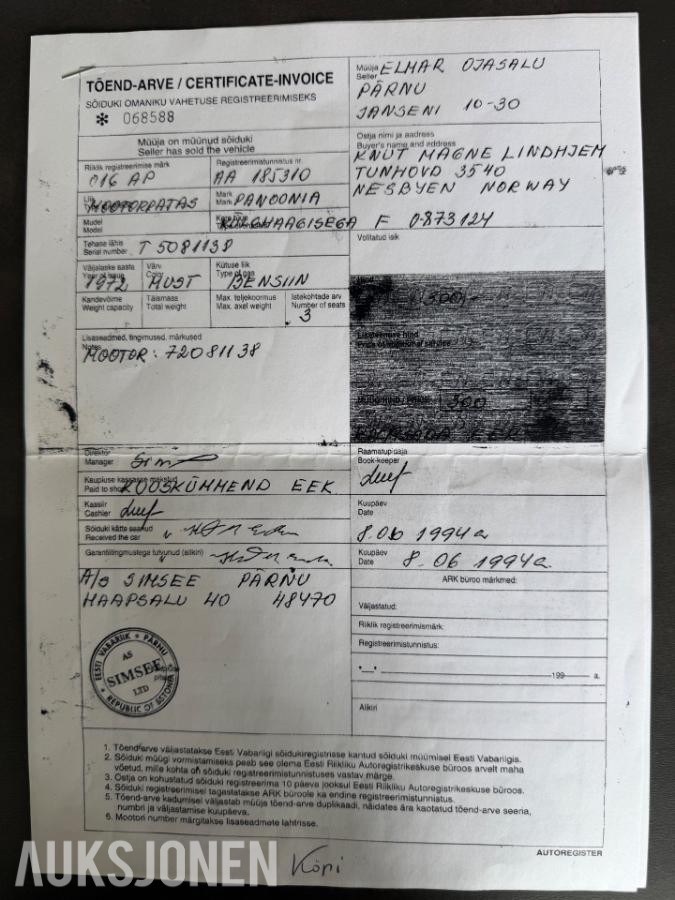 TÕEND-ARVE / CERTIFICATE-INVOICE
SÕIDUKI OMANIKU VAHETUSE REGISTREERIMISEKS
* 068588
Müüja on müünud sõiduki
Seller has sold the vehicle
Riiklik registreerimise märk
016 AP
Registreerimistunnistus nr.
AA 185310
MOOTORRATAS
Mark
Mark
PANOONIA
Mudel
Model
KÜLGHAAGISEGA F 0873124
Tehase tähis
Serial number
T 5081138
Väljalaske aasta
Year of issue
1972
Värv
Color
MUST
Kütuse liik
Type of gas
BENSIIN
Kandevõime
Weight capacity
Täismass
Total weight
Max. teljekoormus
Max. axel weight
Istekohtade arv
Number of seats
3
Lisaseadmed, tingimused, märkused
Notes
MOOTOR: 72081138
Müüja
Seller
ELMAR OJASALU
PÄRNU
JANSENI 10-30
Ostja nimi ja aadress
Buyer's name and address
KNUT MAGNE LINDHJEM
TUNHOVD 3540
NESBYEN NORWAY
Volitatud isik
300,-
Lisateenuse hind
Price of additional service
MÜÜGIHIND / PRICE
300
Direktor
Manager
Raamatupidaja
Book-keeper
Kaupluse kassasse makstud
Paid to shop
KOOSKÜMMEND EEK
Kassiir
Cashier
Kuupäev
Date
8.06 1994a
Sõiduki kätte saanud
Received the car
Garantiitingimustega tutvunud (allkiri)
Kuupäev
Date
8.06 1994a.
A/S SIMSEE PÄRNU
HAAPSALU 40 48470
ARK büroo märkmed:
Väljastatud:
Riiklik registreerimismärk:
Registreerimistunnistus:
"__" 199 a.
Allkiri
EESTI VABARIIK * PÄRNU
AS
SIMSEE
LTD
REPUBLIC OF ESTONIA
1. Tõend-arve väljastatakse Eesti Vabariigi sõidukiregistrisse kantud sõiduki müümisel Eesti Vabariigis.
2. Sõiduki müügi vormistamiseks peab see olema Eesti Riikliku Autoregistrikeskuse büroos arvelt maha
võetud, mille kohta on sõiduki registreerimistunnistuses vastav märge.
3. Ostja on kohustatud sõiduki registreerima 10 päeva jooksul Eesti Riikliku Autoregistrikeskuse büroos.
4. Sõiduki registreerimisel tagastatakse ARK büroole ka endine registreerimistunnistus.
5. Tõend-arve kadumisel väljastab müüja tõend-arve duplikaadi, näidates ära kaotatud tõend-arve seeria,
numbri ja väljastamise kuupäeva.
6. Mootori number märgitakse lisaseadmete lahtrisse.
AUTOREGISTER
AUKSJONEN
Kopi